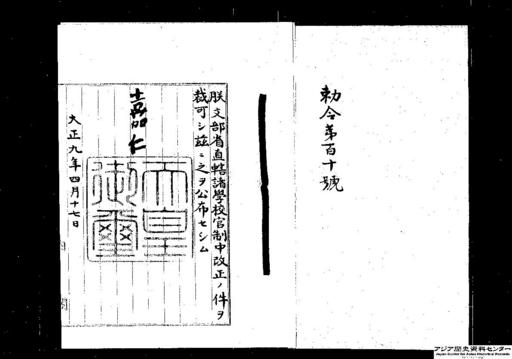 勅令第百十號
朕文部省直轄諸學校官制中改正ノ件ヲ
裁可シ茲ニ之ヲ公布セシム
嘉仁
天皇
御璽
大正九年四月十七日
アジア歴史資料センター
Japan Center for Asian Historical Records